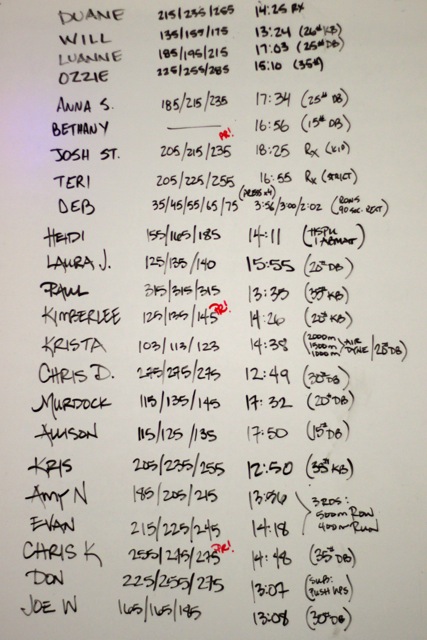 DUANE 215/235/255 14:25 RX
WILL 135/155/175 13:24 (26# KB)
LUANNE 185/195/215 17:03 (25# DB)
OZZIE 225/255/285 15:10 (35#)
ANNA S. 185/215/235 17:34 (25# DB)
BETHANY —— 16:56 (15# DB)
JOSH ST. 205/215/235 PR! 18:25 RX (KID)
TERI 205/225/255 16:55 RX (STRICT)
DEB 35/45/55/65/75 (PRESS x4) 3:56/3:00/2:02 (ROWS 90 SEC. REST)
HEIDI 155/165/185 14:11 (HSPU 1 ABMAT)
LAURA J. 125/135/140 15:55 (20# DB)
PAUL 315/315/315 13:35 (35# KB)
KIMBERLEE 125/135/145 PR! 14:26 (20# KB)
KRISTA 103/113/123 14:38 (2000m 1500m 1000m AIR DYNE/25# DB)
CHRIS D. 275/275/275 12:49 (30# DB)
MURDOCK 115/135/145 17:32 (20# DB)
ALLISON 115/125/135 17:50 (15# DB)
KRIS 205/235/255 12:50 (35# KB)
AMY N 185/205/215 13:36 3 RDS:
500m ROW
EVAN 215/225/245 14:18 400m RUN
CHRIS K 255/275/275 PR! 14:48 (35# DB)
DON 225/255/275 13:07 (SUB: PUSH UPS)
JOE W 165/165/185 13:08 (30# DB)